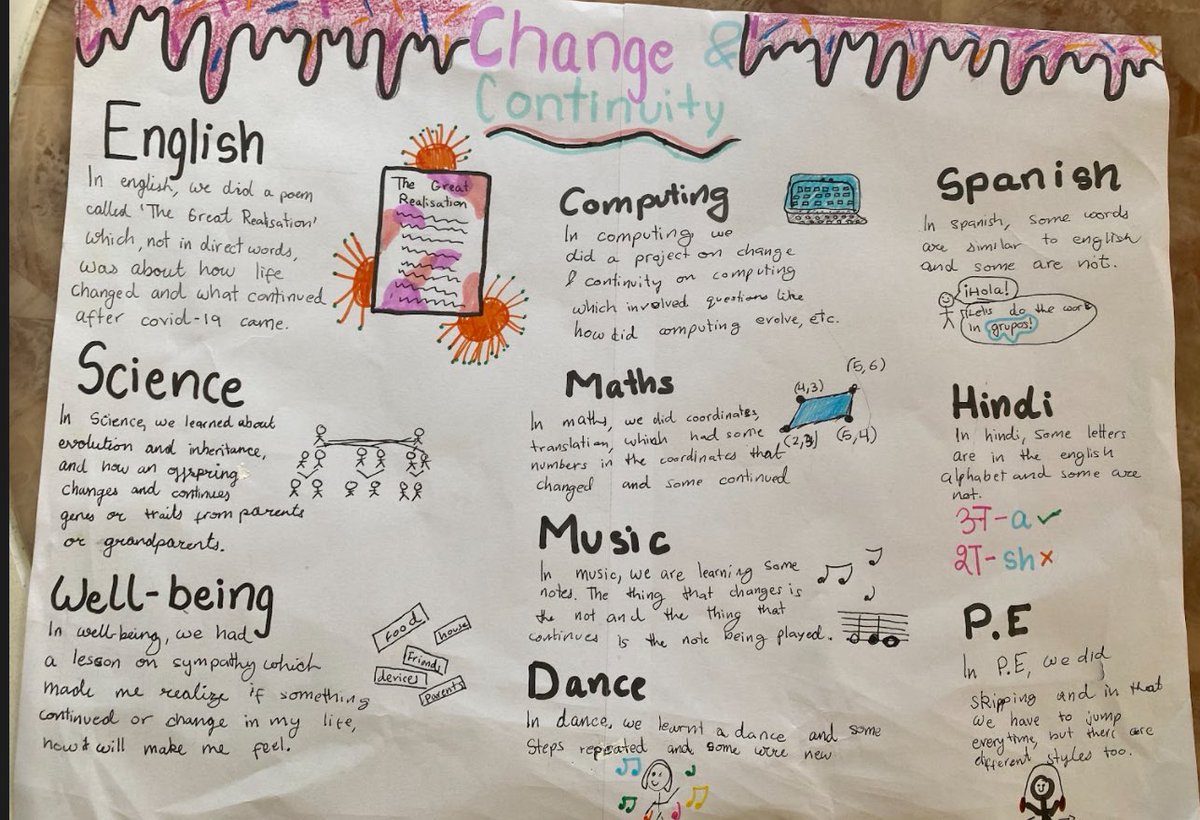 Change &
Continuity
English
In english, we did a poem
called 'The Great Realisation'
which, not in direct words,
was about how life
changed and what continued
after covid-19 came.
The Great
Realisation
Science
In Science, we learned about
evolution and inheritance,
and how an offspring
changes and continues
genes or traits from parents
or grandparents.
Well-being
In well-being, we had
a lesson on sympathy which
made me realize if something
continued or change in my life,
how will make me feel.
food
house
Friends
devices
Parents
Computing
In computing, we
did a project on change
& continuity on computing
which involved questions like
how did computing evolve, etc.
Maths
In maths, we did coordinates,
translation, which had some
numbers in the coordinates that
changed and some continued
(4,3)
(5,6)
(2,3)
(5,4)
Music
In music, we are learning some
notes. The thing that changes is
the not and the thing that
continues is the note being played.
Dance
In dance, we learnt a dance and some
steps repeated and some were new
Spanish
In spanish, some words
are similar to english
and some are not.
¡Hola!
Let's do the work
in grupos!
Hindi
In hindi, some letters
are in the english
alphabet and some are
not.
अ-a ✓
श-sh x
P.E
In P.E, we did
skipping and in that
we have to jump
everytime, but there are
different styles too.